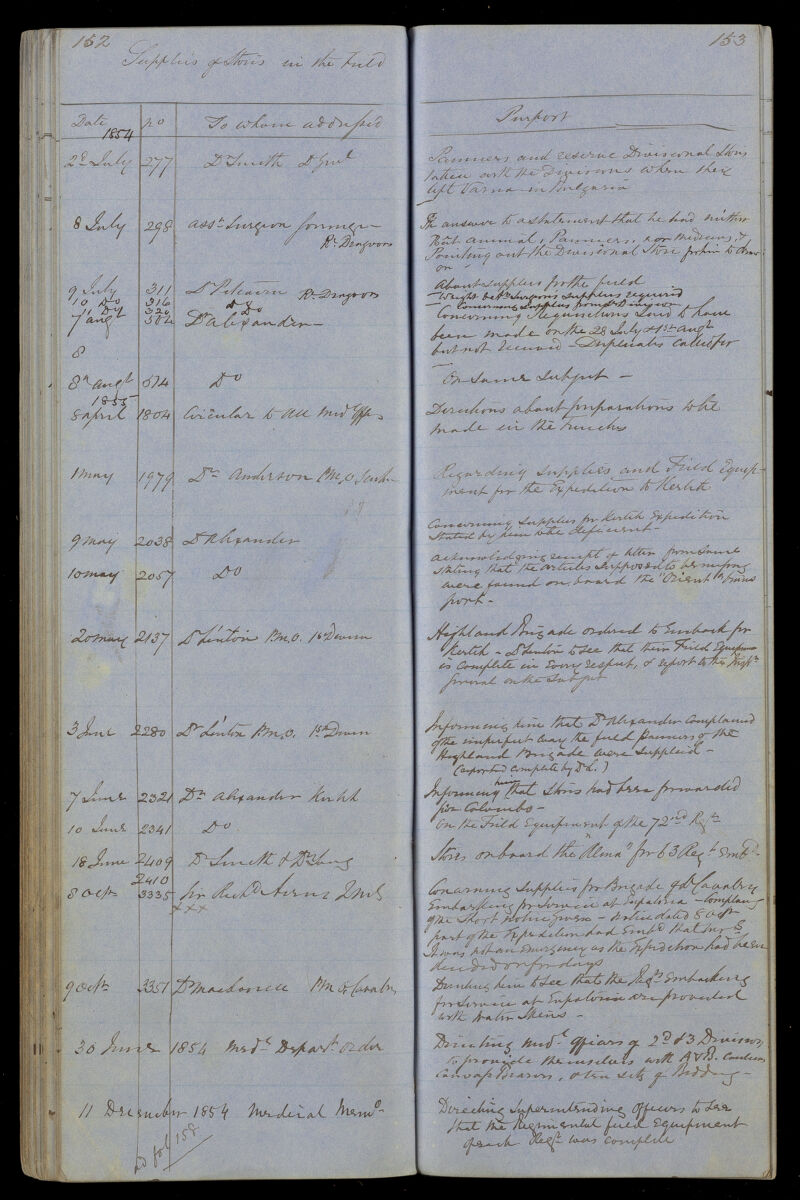 152
Supplies & Stores in the Field
Date No To whom addressed
1854
2d July 277 Dr Smith D Genl
8 July 298 Asst Surgeon
Rl Dragoons
9 July 311 Dr Rl Dragoons
10 Do 316 Do
11 Do 320 Do
7 Augt 502 Dr Alexander
8
8th Augt 514 Do
1855
8 April 1804 Circular to all Medl Offrs
1 May 1979 Dr Anderson P.M.O.
9 May 2038 Dr Alexander
10 May 2057 Do
20 May 2137 Dr Linton P.M.O. 1st Divisn
3 June 2280 Dr Linton P.M.O. 1st Divisn
7 June 2321 Dr Alexander Kertch
10 June 2341 Do
18 June 2409 Dr Smith &
2410
8 Octr 3335 Sir Richd Airey
xxx
9 Octr 3351 Dr P.M.O. Cavalry
30 June 1854 Medl Departt Order
11 December 1854 Medical Memo
153
Purport
Panniers and reserve Divisional Stores
taken with the Divisions when they
left Varna in Bulgaria
In answer to a statement that he had neither
Bât animal, Panniers, nor medicines, &
Pointing out the Divisional Store to draw
on
About supplies for the field
supplies required
Concerning supplies from
Concerning Requisitions said to have
been made on the 28 July & 1st Augt
but not received - Duplicates called for
On same subject -
Directions about preparations to be
made in the Trenches
Regarding supplies and Field Equip-
ment for the Expedition to Kertch
Concerning supplies for Kertch Expedition
stated by him to be deficient -
Acknowledging receipt of letter from same
stating that the articles supposed to be missing
were found on board the "Orient" Trans
port -
Highland Brigade ordered to Embark for
Kertch - Dr Linton to see that their Field Equipment
is complete in every respect, & report to the
General on the subject
Informing him that Dr Alexander complained
of the imperfect way the field panniers of the
Highland Brigade were supplied -
(reported complete by Dr L.)
Informing him that Stores had been forwarded
per Colombo -
On the Field Equipment of the 72nd Regt
Stores on board the "Alma" for 63 Regt
Concerning supplies for Brigade of Cavalry
Embarking for service at Eupatoria - Complains
of the short notice given - notice dated 8 Octr
part of the Expedition had Embd that
It was not an emergency as the Expedition had been
decided on for days
Directing him to see that the Regts Embarking
for service at Eupatoria are provided
with water skins -
Directing Medl Officers of 2d & 3 Division
to provide themselves with A & B Canteens
Canvass Bearers, & ten sets of Bedding -
Directing Superintending Officers to see
that the Regimental field Equipment
of each Regt was complete